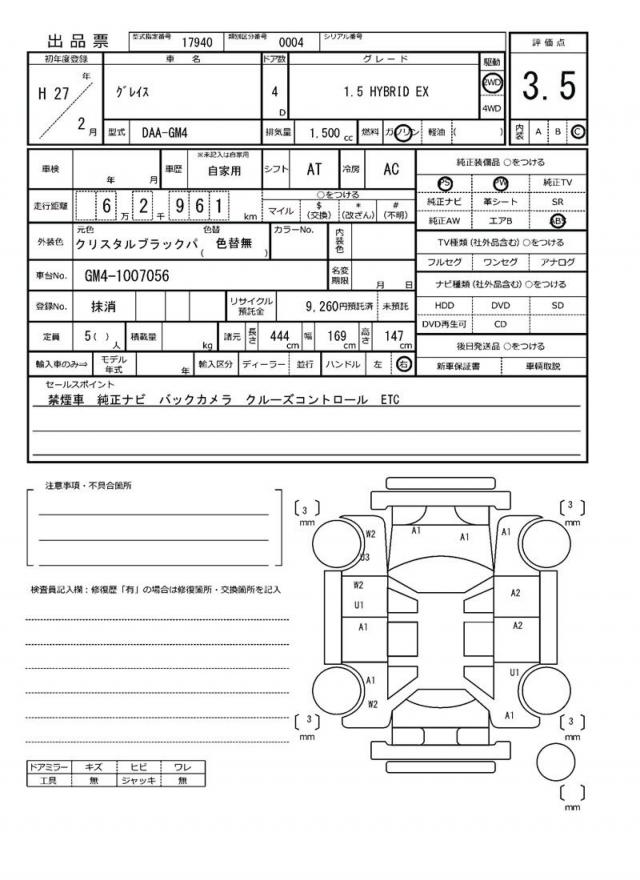 出品票 型式指定番号 17940 類別区分番号 0004 シリアル番号
初年度登録 車 名 ドア数 グレード 駆動 評価点
H 27 年 2 月 グレイス 4 D 1.5 HYBRID EX 2WD 4WD 3.5
型式 DAA-GM4 排気量 1.500 cc 燃料 ガソリン 軽油 ( ) 内装 A B C
車検 年 月 車歴 ※未記入は自家用 自家用 シフト AT 冷房 AC
走行距離 6 万 2 千 9 6 1 km ○をつける マイル $(交換) *(改ざん) #(不明)
外装色 元色 クリスタルブラックパ 色替 ( 色替無 ) カラーNo. 内装色
車台No. GM4-1007056 名変期限 月 日
登録No. 抹消 リサイクル預託金 9,260円預託済 未預託
定員 5 ( ) 人 積載量 kg 諸元 長さ 444 cm 幅 169 cm 高さ 147 cm
輸入車のみ⇒ モデル年式 年 輸入区分 ディーラー 並行 ハンドル 左 右
純正装備品 ○をつける
PS PW 純正TV
純正ナビ 革シート SR
純正AW エアB ABS
TV種類 (社外品含む) ○をつける
フルセグ ワンセグ アナログ
ナビ種類 (社外品含む) ○をつける
HDD DVD SD
DVD再生可 CD
後日発送品 ○をつける
新車保証書 車輌取説
セールスポイント
禁煙車 純正ナビ バックカメラ クルーズコントロール ETC
注意事項・不具合箇所
検査員記入欄：修復歴「有」の場合は修復箇所・交換箇所を記入
ドアミラー キズ ヒビ ワレ
工具 無 ジャッキ 無
[ 3 ] mm [ 3 ] mm
W2 A1 A1 A1
U3
W2 A2
U1
A1 A2
A1 U1
W2 A1
[ 3 ] mm [ 3 ] mm
[ ] mm